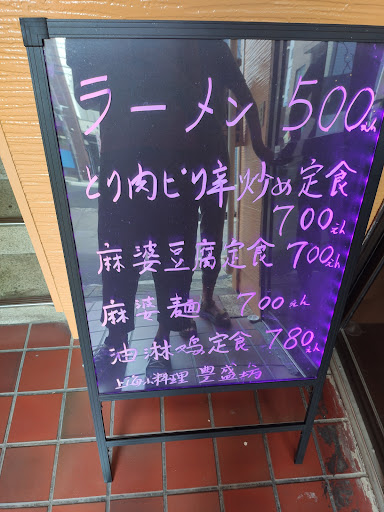 ラーメン 500えん
とり肉ピリ辛炒め定食
700えん
麻婆豆腐定食 700えん
麻婆麺 700えん
油淋鸡定食 780えん
上海料理 豊盛坊